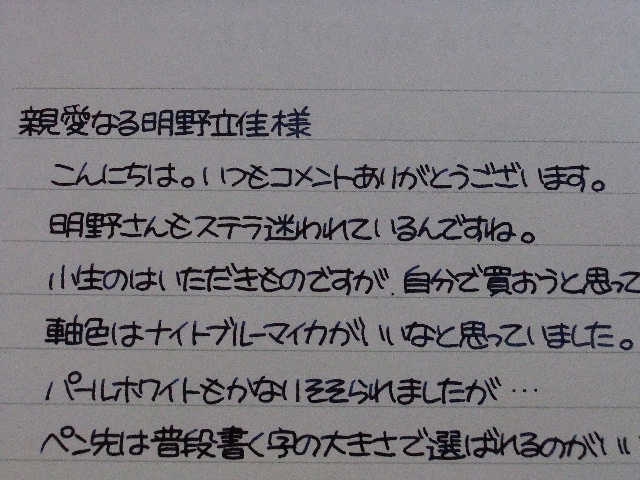 親愛なる明野立佳様
こんにちは。いつもコメントありがとうございます。
明野さんもステラ迷われているんですね。
小生のはいただきものですが、自分で買おうと思って
軸色はナイトブルーマイカがいいなと思っていました。
パールホワイトもかなりそそられましたが…
ペン先は普段書く字の大きさで選ばれるのがいい